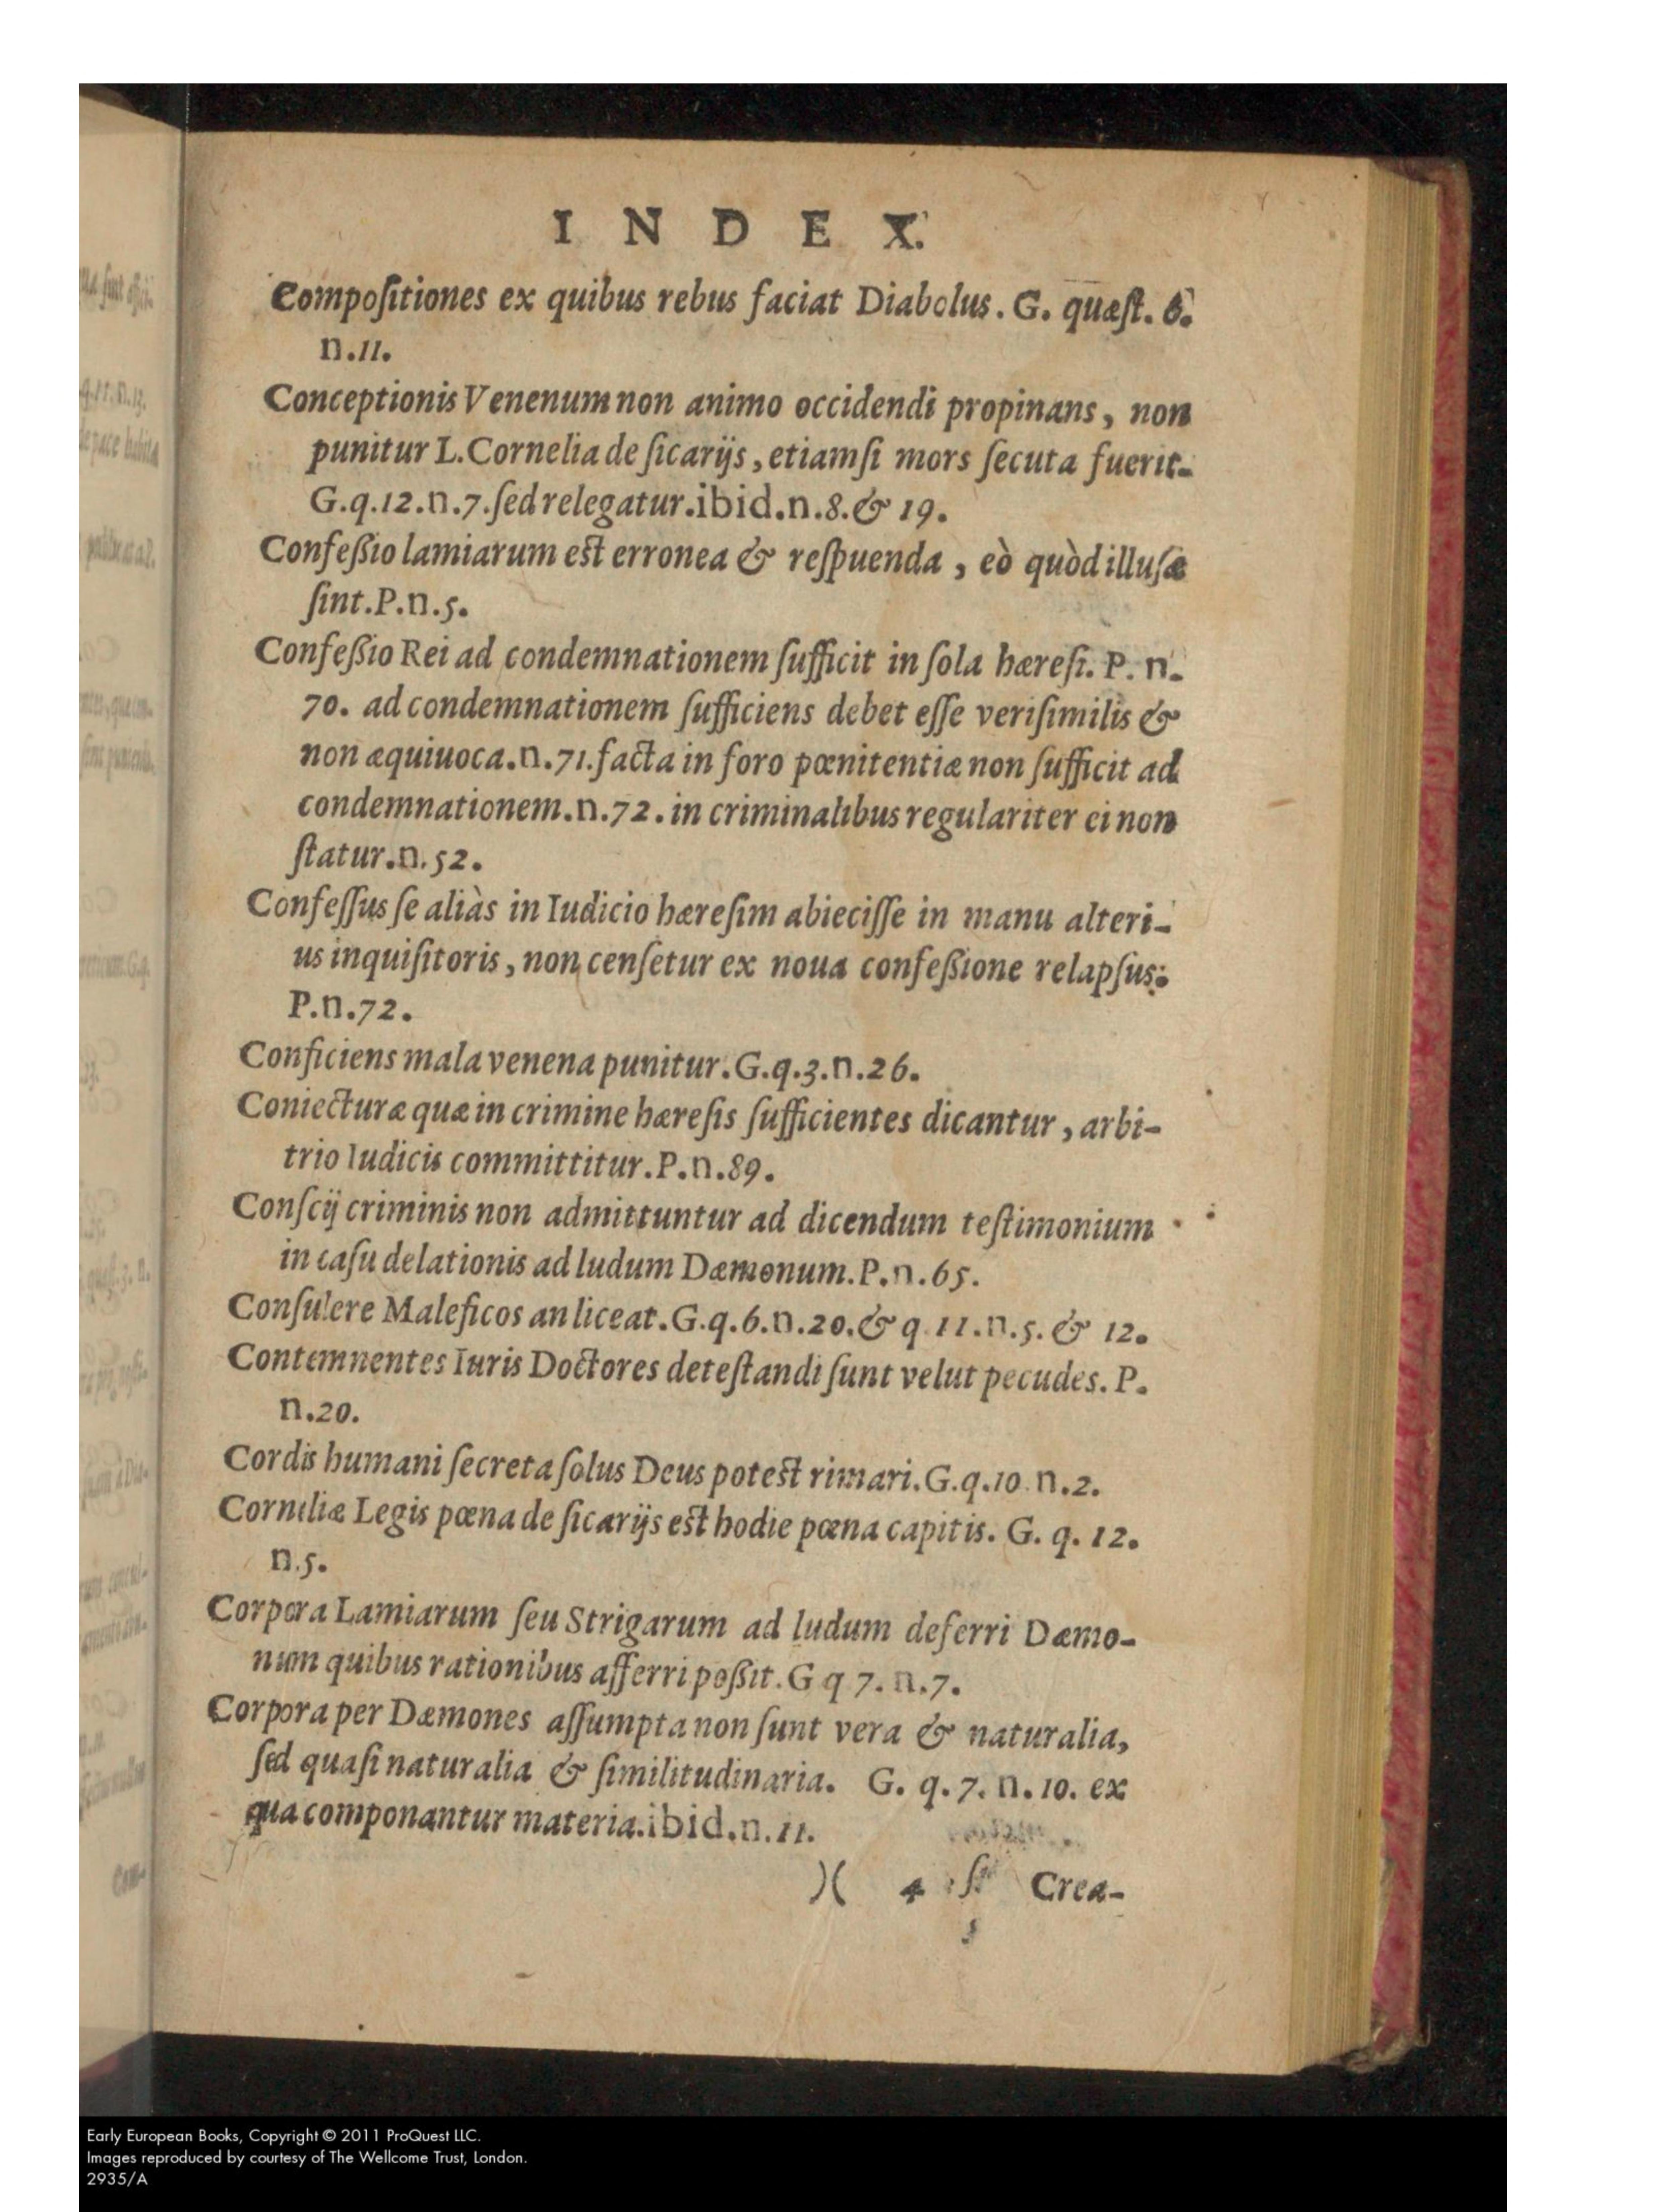 INDEX.
Compoſitiones ex quibus rebus faciat Diabolus. G. quæſt. 6.
n.11.
Conceptionis Venenum non animo occidendi propinans, non
punitur L. Cornelia de ſicarijs, etiamſi mors ſecuta fuerit.
G.q.12.n.7. ſed relegatur. ibid.n.8. & 19.
Confeßio lamiarum eſt erronea & reſpuenda, eò quòd illuſæ
ſint. P.n.5.
Confeßio Rei ad condemnationem ſufficit in ſola hæreſi. P. n.
70. ad condemnationem ſufficiens debet eſſe veriſimilis &
non æquiuoca. n.71. facta in foro pœnitentiæ non ſufficit ad
condemnationem. n.72. in criminalibus regulariter ei non
ſtatur. n.52.
Confeſſus ſe aliàs in Iudicio hæreſim abieciſſe in manu alteri-
us inquiſitoris, non cenſetur ex noua confeßione relapſus.
P.n.72.
Conficiens mala venena punitur. G.q.3.n.26.
Coniecturæ quæ in crimine hæreſis ſufficientes dicantur, arbi-
trio Iudicis committitur. P.n.89.
Conſcij criminis non admittuntur ad dicendum teſtimonium
in caſu delationis ad ludum Dæmonum. P.n.65.
Conſulere Maleficos an liceat. G.q.6.n.20. & q.11.n.5. & 12.
Contemnentes Iuris Doctores deteſtandi ſunt velut pecudes. P.
n.20.
Cordis humani ſecreta ſolus Deus poteſt rimari. G.q.10.n.2.
Corneliæ Legis pœna de ſicarijs eſt hodie pœna capitis. G. q. 12.
n.5.
Corpora Lamiarum ſeu Strigarum ad ludum deferri Dæmo-
num quibus rationibus afferri poßit. G q 7. n.7.
Corpora per Dæmones aſſumpta non ſunt vera & naturalia,
ſed quaſi naturalia & ſimilitudinaria. G. q. 7. n. 10. ex
qua componantur materia. ibid.n.11.
)( 4 Crea-
Early European Books, Copyright © 2011 ProQuest LLC.
Images reproduced by courtesy of The Wellcome Trust, London.
2935/A